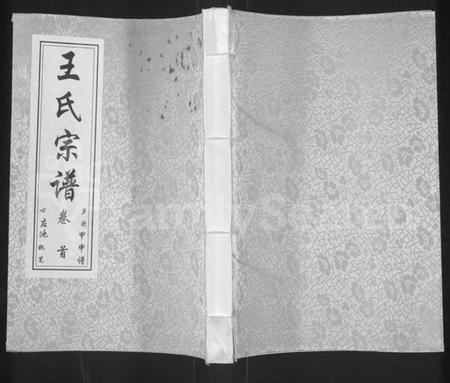 王氏宗谱
卷首
岁次甲申谱
心在池执笔
FamilySearch